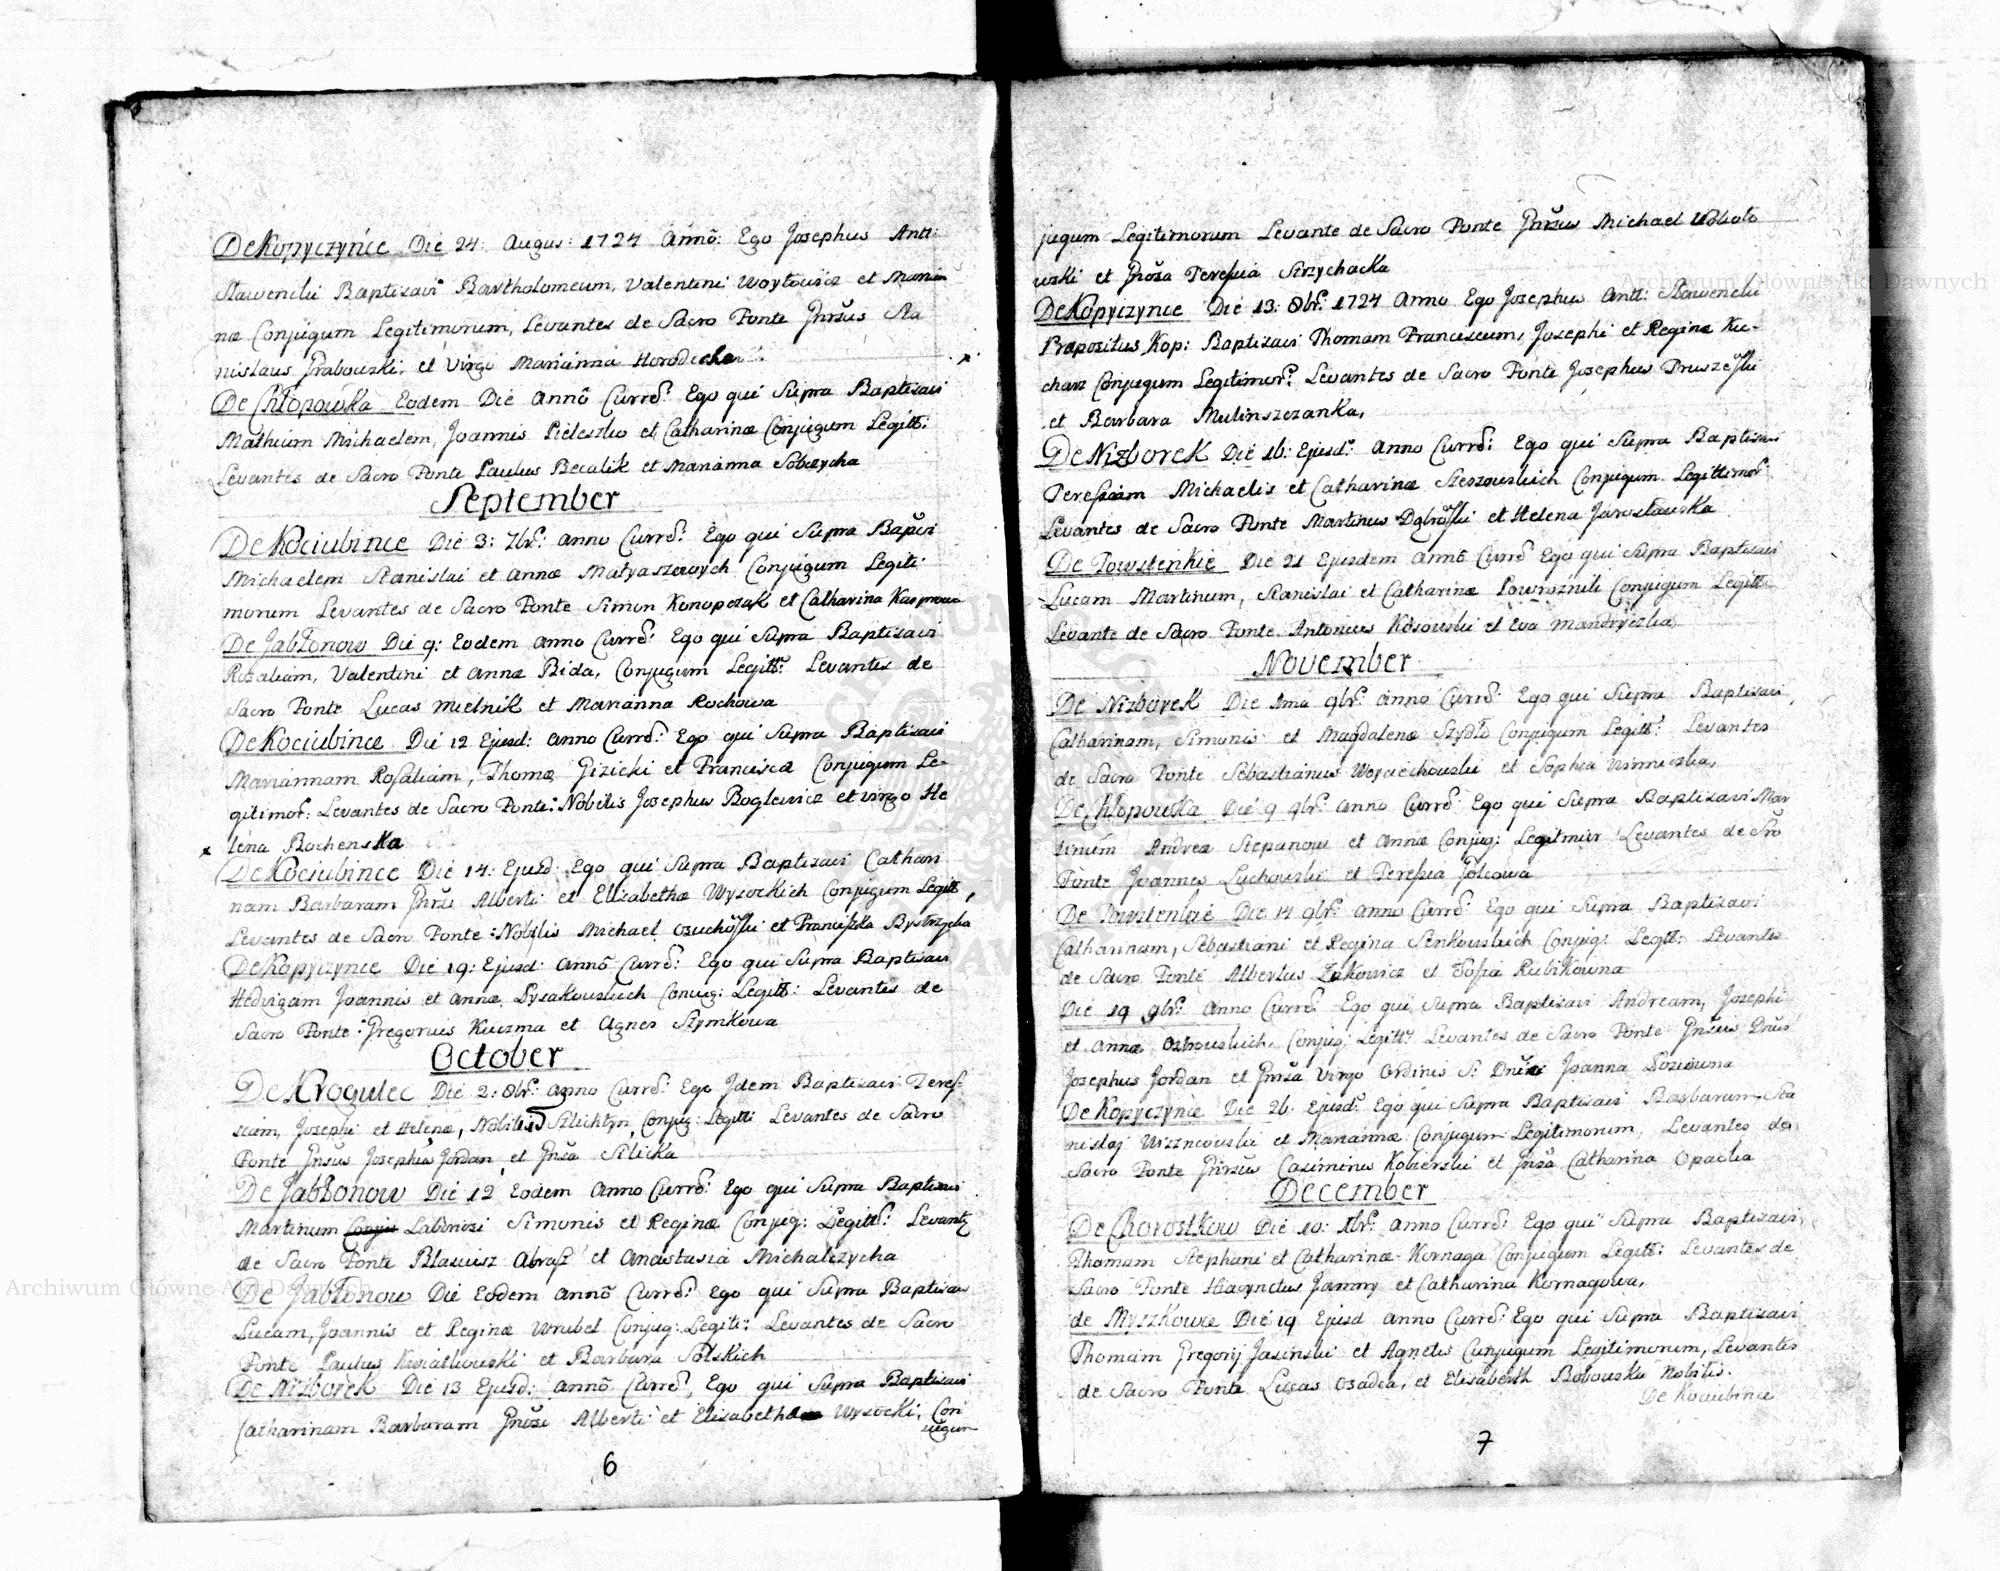 De Kopyczyńce Die 24: Augus: 1724 Annõ: Ego Josephus Antt:
Sławencki Baptisavi Bartholomeum, Valentini Woytowicz et Marian
næ Conjugum Legitimorum, Levantes de Sacro Fonte Gnrsus Sta
nislaus Grabowski, et Virgo Marianna Horodecka
De Chłopowka Eodem Die Annõ Currẽ: Ego qui Supra Baptisavi
Matheum Michaelem, Joannis Pieleszko et Catharinæ Conjugum Legitt:
Levantes de Sacro Fonte Paulus Becalik et Marianna Sobczycha
September
De Kociubince Die 3: 7br: Anno Currẽ: Ego qui Supra Bapvi
Michaelem Stanislai et Annæ Matyaszowych Conjugum Legiti
morum Levantes de Sacro Fonte Simon Konopczak et Catharina Kasprowa
De Jabłonow Die 9: Eodem Anno Currẽ: Ego qui Supra Baptisavi
Rosaliam, Valentini et Annæ Bida, Conjugum Legitt: Levantes de
Sacro Fonte Lucas Mielnik et Marianna Rochowa
De Kociubince Die 12 Ejusd: Anno Currẽ: Ego qui Supra Baptisavi
Mariannam Rosaliam, Thomæ Gizicki et Franciscæ Conjugum Le-
gitimor: Levantes de Sacro Fonte: Nobilis Josephus Boglewicz et Virgo He
lena Bochenska
De Kociubince Die 14: Ejusd: Ego qui Supra Baptisavi Cathari
nam Barbaram Gnrsi Alberti et Elisabethæ Wysockich Conjugum Legitt
Levantes de Sacro Fonte: Nobilis Michael et Franciszka Bystrzycka
De Kopyczynce Die 19: Ejusd: Annõ Currẽ: Ego qui Supra Baptisavi
Hedvigam Joannis et Annæ Lysakowskich Conjug: Legitt: Levantes de
Sacro Fonte: Gregorius Kuczma et Agnes Szymkowa
October
De Krogulec Die 2: 8br: Anno Currẽ: Ego Idem Baptisavi Teres-
siam, Josephi et Helenæ, Nobiliu Szlichtyn Conjug: Legitti Levantes de Sacro
Fonte Gnrsus Josephus Jordan et Gnrsa Silicka
De Jabłonow Die 12 Eodem Anno Currẽ: Ego qui Supra Baptisavi
Martinum Laboriosi Simonis et Reginæ Conjug: Legitt: Levantz
de Sacro Fonte Blasius Abrasz et Anastasia Michalczycha
De Jabłonow Die Eodem Annõ Currẽ: Ego qui Supra Baptisavi
Lucam, Joannis et Reginæ Wrubel Conjug: Legiti: Levantes de Sacro
Fonte Paulus Kwiatkowski et Barbara Solskich
De Nizborek Die 13 Ejusd: Annõ Currẽ, Ego qui Supra Baptisavi
Catharinam Barbaram Gnrosi Alberti et Elisabethæ Wysocki, Con
iugum
6
jugum Legitimorum Levante de Sacro Fonte Gnrsus Michael
wski et Gnrosa Teressia Strzychacka
De Kopyczynce Die 13: 8br: 1724 Anno Ego Josephus Antt: Sławencki
Præpositus Kop: Baptisavi Thomam Franciscum, Josephi et Reginæ Ku-
charz Conjugum Legitimor: Levantes de Sacro Fonte Josephus
et Barbara Mulinszczanka,
De Nizborek Die 16: Ejusd: Anno Currẽ: Ego qui Supra Baptisavi
Teressiam Michaelis et Catharinæ Conjugum Legittimor:
Levantes de Sacro Fonte Martinus et Helena Jarosławska
De Towstenkie Die 21 Ejusdem Annõ Currẽ Ego qui Supra Baptisavi
Lucam Martinum, Stanislai et Catharinæ Powroznik Conjugum Legitti
Levante de Sacro Fonte Antonius Kosowski et Eva Mandryczka
November
De Nizborek Die 1ma 9br: Anno Currẽ: Ego qui Supra Baptisavi
Catharinam, Simonis et Magdalenæ Szydło Conjugum Legitt: Levantes
de Sacro Fonte Sebastianus Woyciechowski et Sophia
De Chłopowka Die 9 9br: Anno Currẽ: Ego qui Supra Baptisavi Mar
tinum Andreæ Stepanow et Annæ Conjug: Legitmor Levantes de Sro
Fonte Joannes Luchowski et Teressia Jolcowa
De Towstenkie Die 14 9br: Anno Currẽ: Ego qui Supra Baptisavi
Catharinam, Sebastiani et Regina Senkowskich Conjug: Legitt: Levantes
de Sacro Fonte Albertus Zukowicz et Zofia Rubikowna
Die 19 9br: Anno Currẽ: Ego qui Supra Baptisavi Andream, Josephi
et Annæ Ostrowskich, Conjug: Legitt: Levantes de Sacro Fonte Gnrsus Dnus
Josephus Jordan et Gnrsa Virgo Ordinis S: Dnici Joanna
De Kopyczynce Die 26 Ejusd: Ego qui Supra Baptisavi Barbaram, Sta
nislaj et Mariannæ Conjugum Legitimorum, Levantes de
Sacro Fonte Gnrsus Casimirus Kobierski et Gnrsa Catharina Opacka
December
De Chorostkow Die 10: Xbr: Anno Currẽ: Ego qui Supra Baptisavi
Thomam Stephani et Catharinæ Kornaga Conjugum Legitt: Levantes de
Sacro Fonte Hiacynctus Janny et Catharina Kornagowa,
de Myszkowce Die 19 Ejusd Anno Currẽ: Ego qui Supra Baptisavi
Thomam Gregorij Jasinski et Agnetis Conjugum Legitimorum, Levantes
de Sacro Fonte Lucas Osadca, et Elisabeth Bobowska Nobilis.
De Kociubince
7
Archiwum Główne Akt Dawnych
Archiwum Główne Akt Dawnych